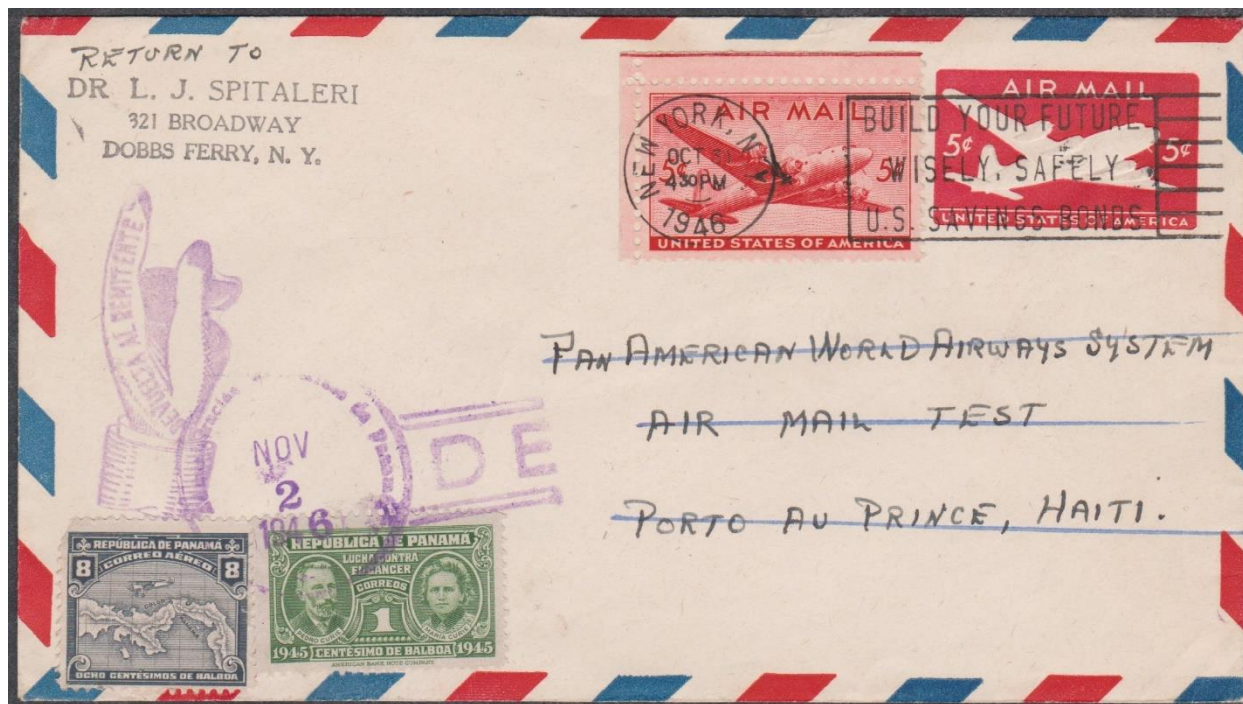 RETURN TO
DR L. J. SPITALERI
321 BROADWAY
DOBBS FERRY, N. Y.
AIR MAIL
5¢ 5¢
UNITED STATES OF AMERICA
NEW YORK, N.Y.
OCT 31
4 30 PM
1946
BUILD YOUR FUTURE
WISELY, SAFELY
U.S. SAVINGS BONDS
AIR MAIL
5¢ 5¢
UNITED STATES OF AMERICA
PAN AMERICAN WORLD AIRWAYS SYSTEM
AIR MAIL TEST
PORTO AU PRINCE, HAITI.
DEVUELTA AL REMITENTE
de Panama
NOV
2
1946
DE
REPÚBLICA DE PANAMÁ
CORREO AÉREO
8 8
OCHO CENTÉSIMOS DE BALBOA
REPÚBLICA DE PANAMÁ
LUCHA CONTRA
EL CANCER
CORREOS
1
PEDRO CURIE MARIA CURIE
1945 CENTÉSIMO DE BALBOA 1945
AMERICAN BANK NOTE COMPANY